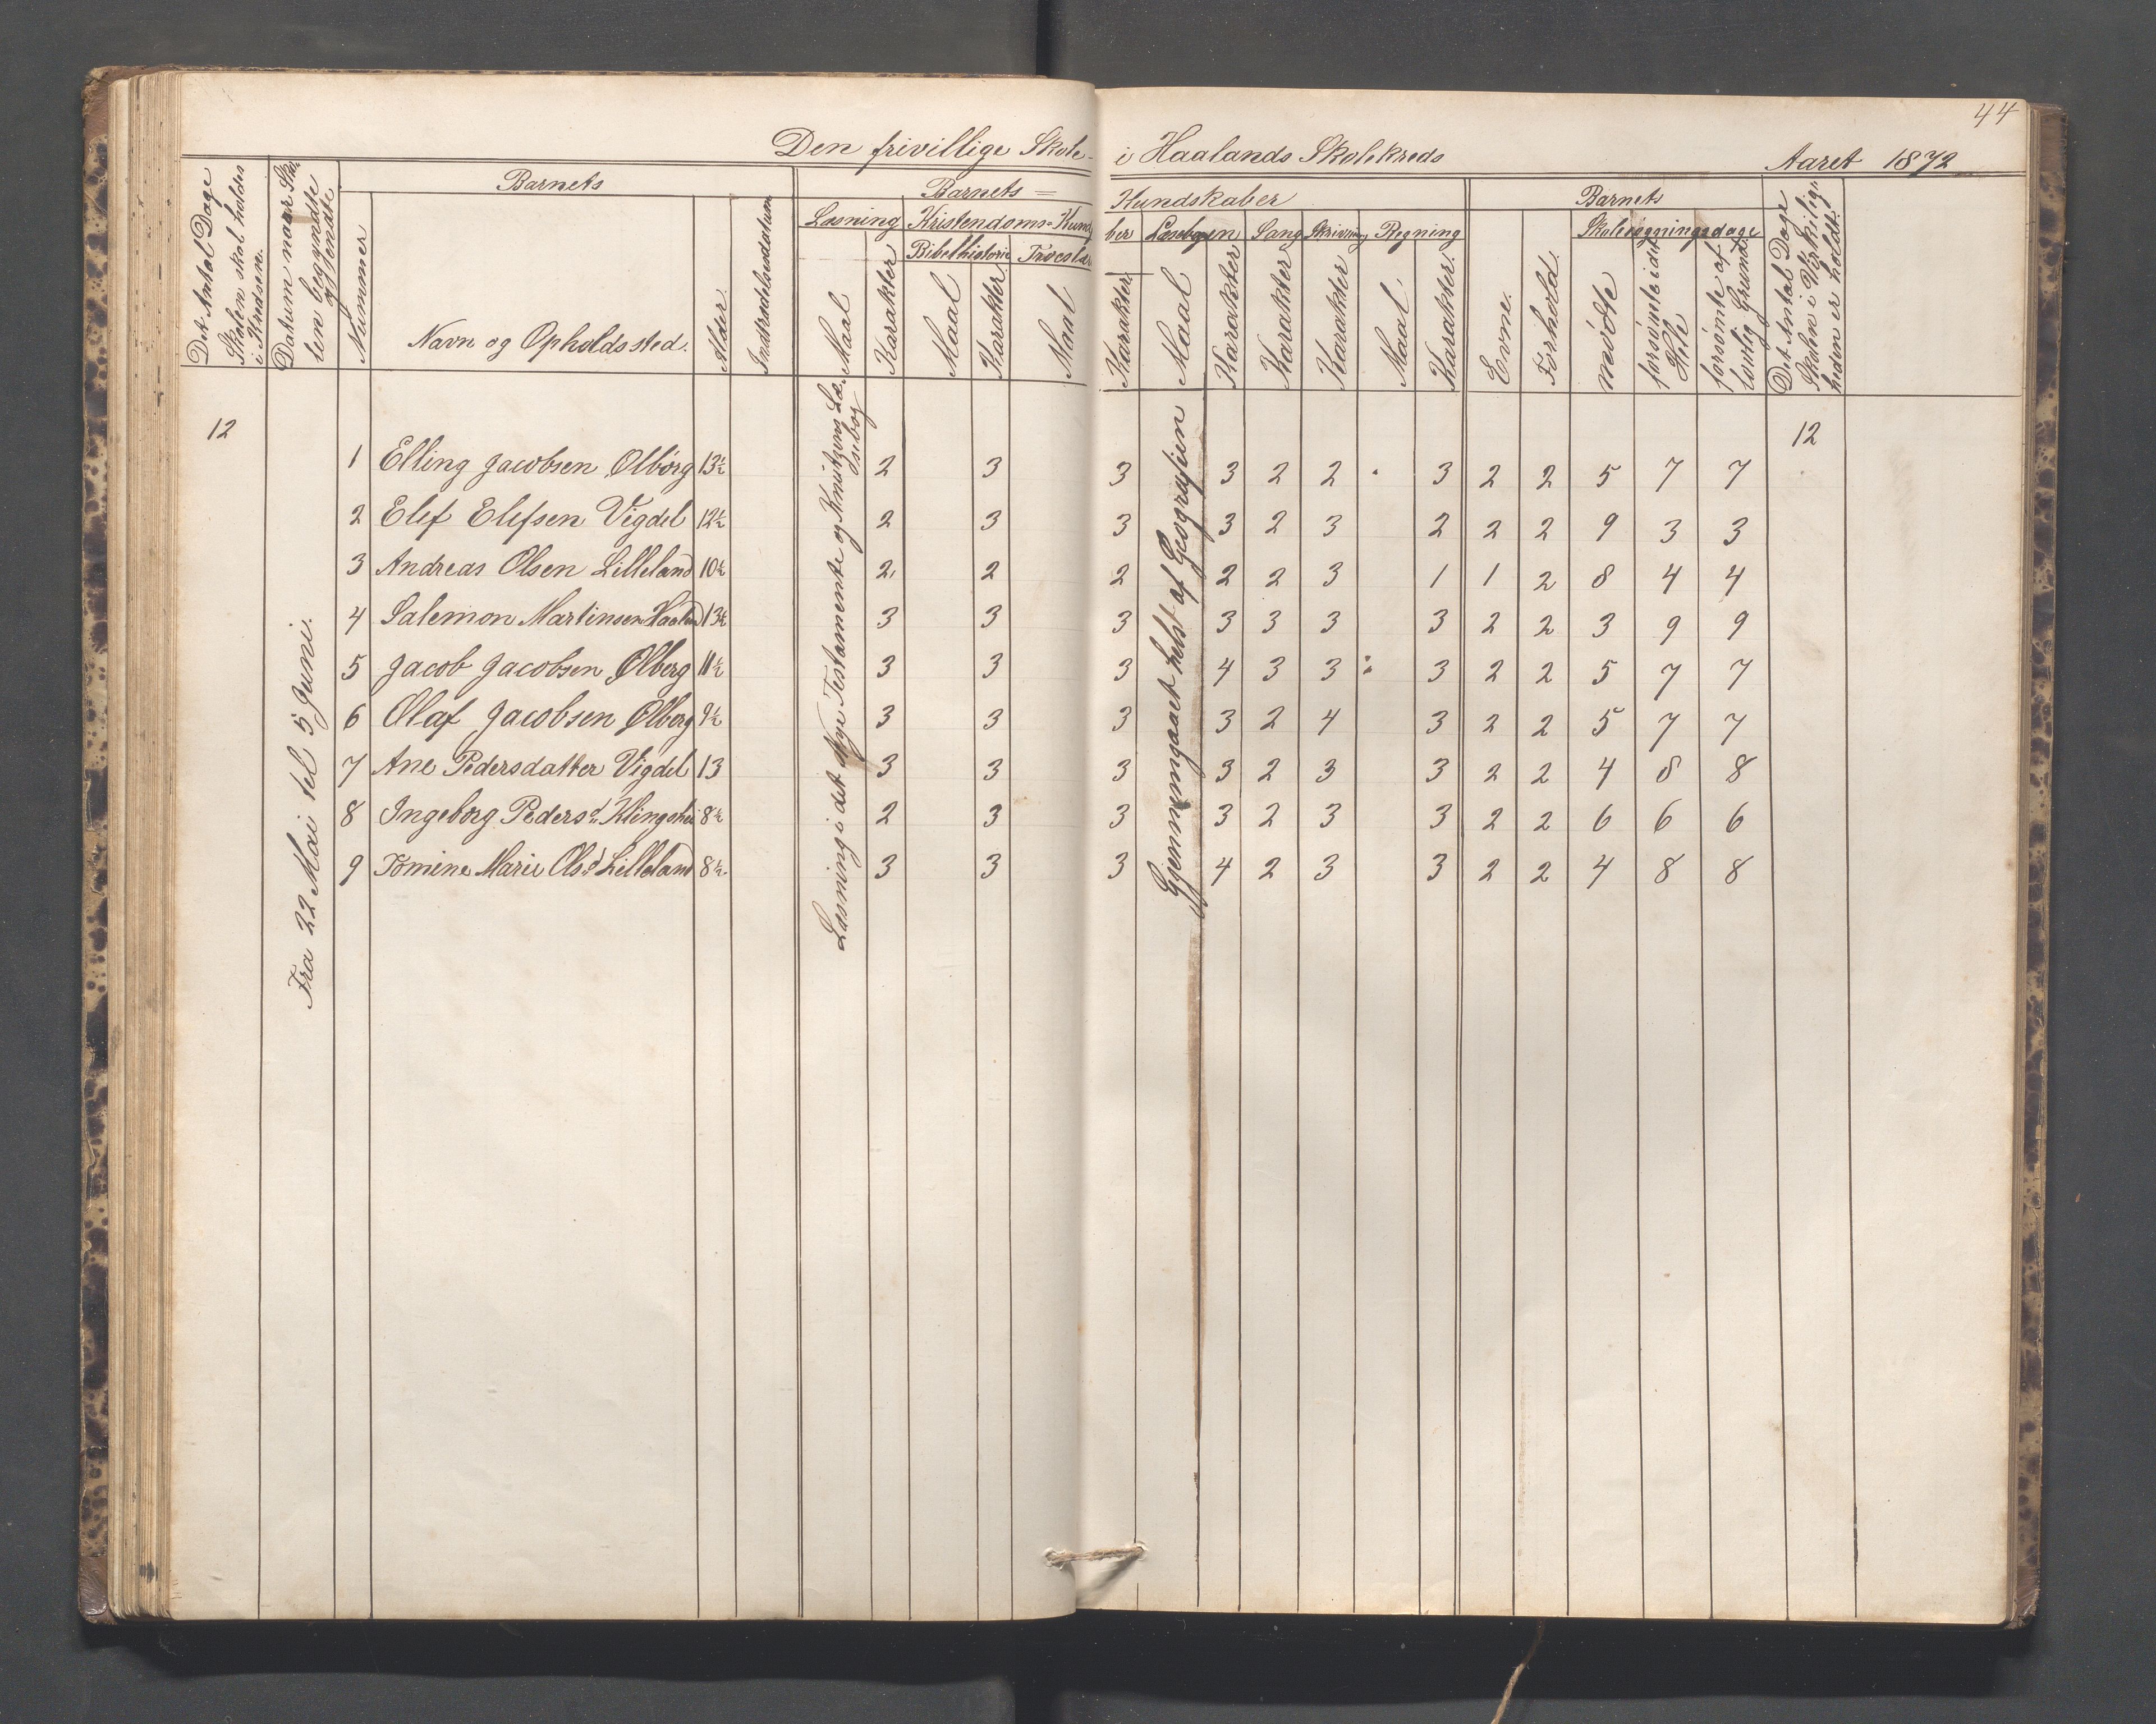 44
Den frivillige Skole- i Haalands Skolekreds Aaret 1872
Det Antal Dage Skolen skal holdes i Kredsen.
Datum naar Skolen begyndte og endte
Barnets
Nummer
Navn og Opholdssted.
Alder
Indtrædelsesdatum
Barnets = Kundskaber
Læsning Kristendoms-Kundskaber Læsebogen Sang Skrivning Regning
Bibelhistorie Troeslære
Maal Karakter Maal Karakter Maal Karakter Maal Karakter Karakter Karakter Maal Karakter.
Barnets
Evne. Forhold.
Skolesøgningsdage
mødte
forsømte i det Hele
forsømte af lovlig Grund.
Det Antal Dage Skolen i Virkeligheden er holdt.
12
Fra 22 Mai tel 5 Juni.
Læsning i det Nye Testamente og Knutzens Læsebog
Gjennemgaaet helst af Geografien
12
1 Elling Jacobsen Ølbørg 13½ 2 3 3 3 2 2 3 2 2 5 7 7
2 Elef Elefsen Vigdel 12½ 2 3 3 3 2 3 2 2 2 9 3 3
3 Andreas Olsen Lilleland 10½ 2 2 2 2 2 3 1 1 2 8 4 4
4 Salemon Martinsen Haaland 13½ 3 3 3 3 3 3 3 2 2 3 9 9
5 Jacob Jacobsen Ølberg 11½ 3 3 3 4 3 3 3 2 2 5 7 7
6 Olaf Jacobsen Ølberg 9½ 3 3 3 3 2 4 3 2 2 5 7 7
7 Ane Pedersdatter Vigdel 13 3 3 3 3 2 3 3 2 2 4 8 8
8 Ingeborg Pedersd. 8½ 2 3 3 3 2 3 3 2 2 6 6 6
9 Tomine Marie Olsd Lilleland 8½ 3 3 3 4 2 3 3 2 2 4 8 8